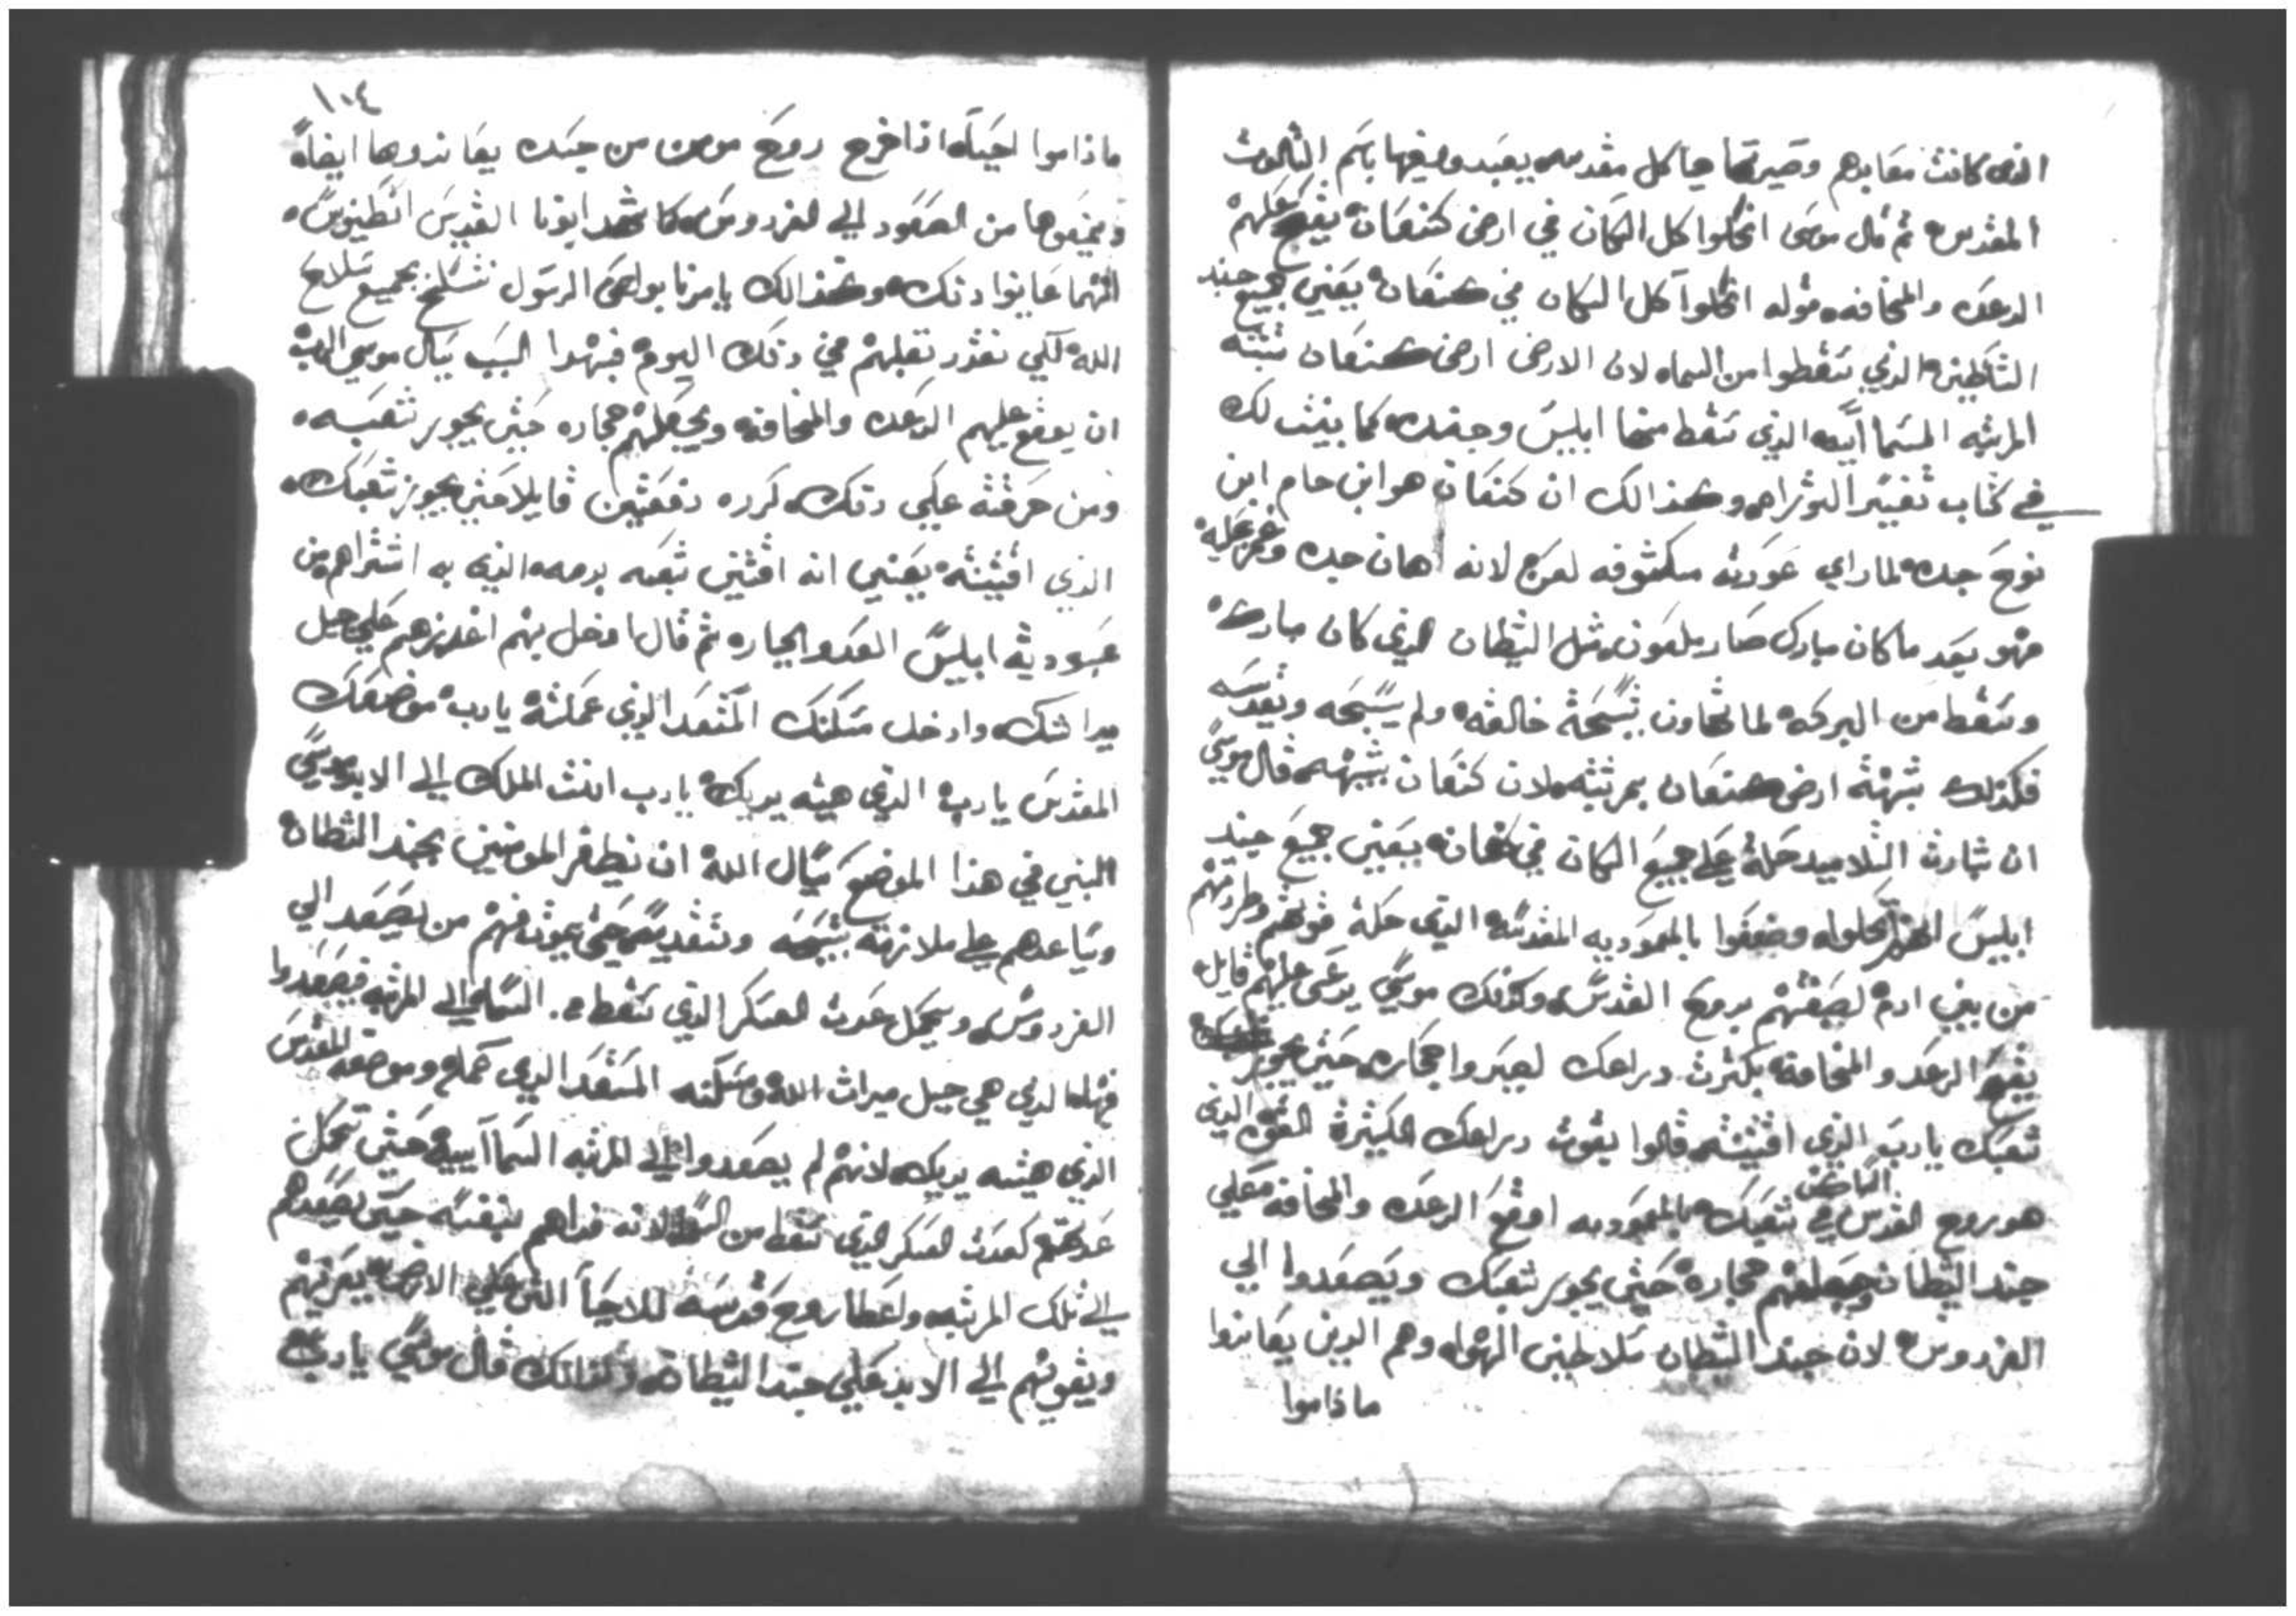 الذي كانت معابدهم وصيرتها هياكل مقدسه يعبدو فيها باسم الثالوث
المقدس ثم قال موسى انحلوا كل السكان في ارض كنعان يقع عليهم
الرعده والمخافه قوله انحلوا كل السكان في كنعان يعني جميع جند
الشياطين الذي سقطوا من السماء لان الارض ارض كنعان شبه
المرتبه السمآآييه الذي سقط منها ابليس وجنده كما بينت لك
في كتاب تفسير التوراه وكذالك ان كنعان هو ابن حام ابن
نوح جده لما راي عورته مكشوفه لعن لانه اهان جده
فهو بعد ما كان مبارك صار ملعون مثل الشيطان الذي كان مبارك
وسقط من البركه لما تهاون بتسبحة خالقه ولم يسبحه ويقدسه
فكذلك شبهة ارض كنعان بمرتبته لان كنعان يشبهه قال موسي
ان بشارت التلاميد حلة على جميع السكان في كنعان يعني جميع جند
ابليس انحلوا وضعفوا بالمعموديه المقدسه الذي حلة قوتهم وطردتهم
من بني ادم لصبغتهم بروح القدس وكذلك موسي يدعي عليهم قايل
يقع الرعد والمخافه بكثرت دراعك ليصيروا حجاره حتي يجوز
شعبك يا رب الذي اقتنيته قالوا بقوت دراعك الكثيرة القوه الذي
هو روح القدس الساكن في شعبك بالمعموديه اوقع الرعده والمخافه علي
جند الشيطان وجعلهم حجاره حتي يجوز شعبك ويصعدوا الي
الفردوس لان جند الشيطان سلاطين الهوا وهم الدين يعاندوا
ماداموا
١٠٤
ماداموا احياء اذا خرج روح مومن من جسده يعاندوها ايضاً
ويمنعوها من الصعود الي الفردوس كما شهد ابونا القديس انطنيوس
انهما عاينوا دلك وكذالك يامرنا بولص الرسول نتسلح بجميع سلاح
الله لكي نقدر نغلبهم في دلك اليوم فبهدا السبب يسال موسي الرب
ان يوقع عليهم الرعده والمخافه ويجعلهم حجاره حتي يجوز شعبه
ومن حرقته علي دلك كرره دفعتين قايلا حتي يجوز شعبك
الذي اقتنيته يعني انه اقتني شعبه بدمه الذي به اشتراهم من
عبوديه ابليس العدو ثم قال ادخل بهم اغرسهم علي جبل
ميراتك وادخل مسكنك المستعد الذي عملته يا رب موضعك
المقدس يا رب الذي هيئه يديك يا رب انت الملك الي الابد موسي
النبي في هذا الموضع يسال الله ان يظفر المومنين بجند الشيطان
ويساعدهم علي ملازمة تسبيحه وتقديسه حتي يموت منهم من يصعد الي
الفردوس ويكمل عدت العسكر الذي سقط من السما الي المرتبه فيصعدوا
الذي هي جبل ميراث الله ومسكنه المستعد الذي عمله وموضعه المقدس
الذي هيئه يديك لانهم لم يصعدوا الي المرتبه السمآآييه حتي تكمل
عدتهم كعدت العسكر الذي سقط من السما لانه فداهم بنفسه حتي يصعدهم
الي تلك المرتبه واعطا روح قدسه للاحيآ التي علي الارض يعزيهم
ويقويهم الي الابد علي جند الشيطان وكذالك قال موسي يا رب